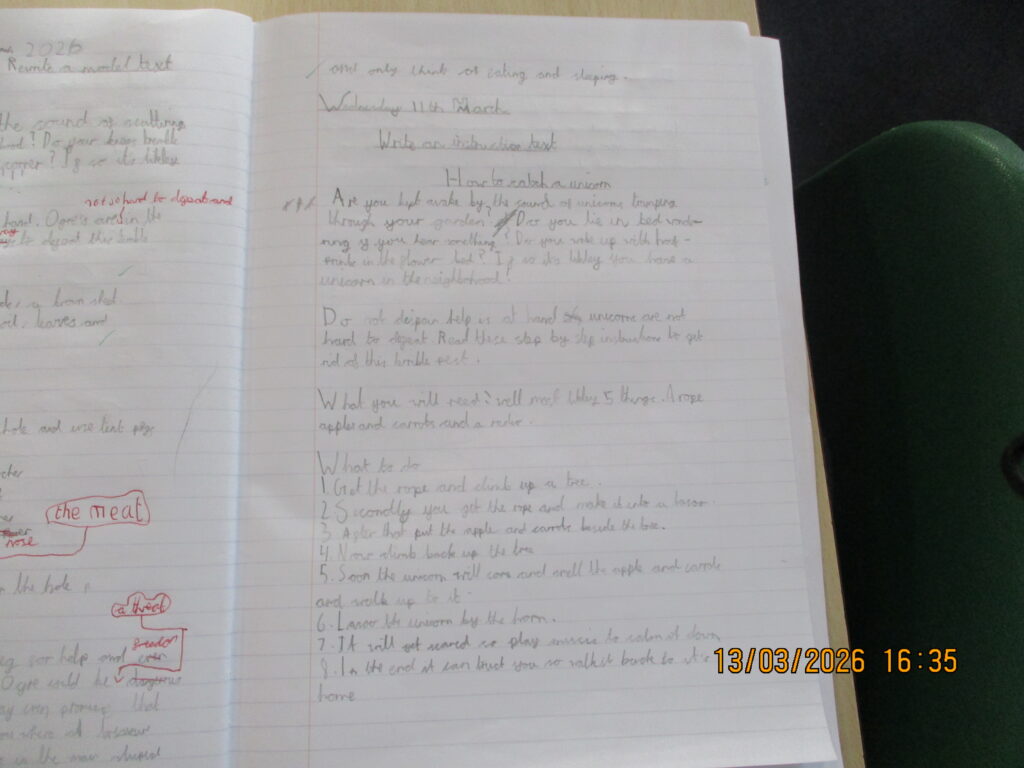 2026
Rewrite a model text
the sound of scuttering
? Do your knees tremble
? If so it's likley
not so hard to defeat and
hand. Ogre's are in the
to defeat this terrible
leaves and
hole and use tent pegs
the meat
nose
in the hole
a threat
for help and
Ogre could be
promise that
where it
in the
and only think of eating and sleeping.
Wednesday 11th March
Write an instruction text
How to catch a unicorn
Are you kept awake by the sound of unicorns tramping
through your garden? Do you lie in bed wond-
ring if you hear something? Do you wake up with hoof-
prints in the flower bed? If so it's likley you have a
unicorn in the neighborhood!
Do not deipair help is at hand unicorns are not
hard to defeat Read these step by step instructions to get
rid of this terrible pest.
What you will need: well most likley 5 things. A rope
apples and carrots and a radio.
What to do
1. Get the rope and climb up a tree.
2. Secondly you get the rope and make it into a lasoo.
3. After that put the apple and carrots beside the tree.
4. Now climb back up the tree
5. Soon the unicorn will come and smell the apple and carrots
and walk up to it.
6. Lasoo the unicorn by the horn.
7. It will get scared so play music to calm it down
8. In the end it can trust you so walk it back to it's
home
13/03/2026 16:35